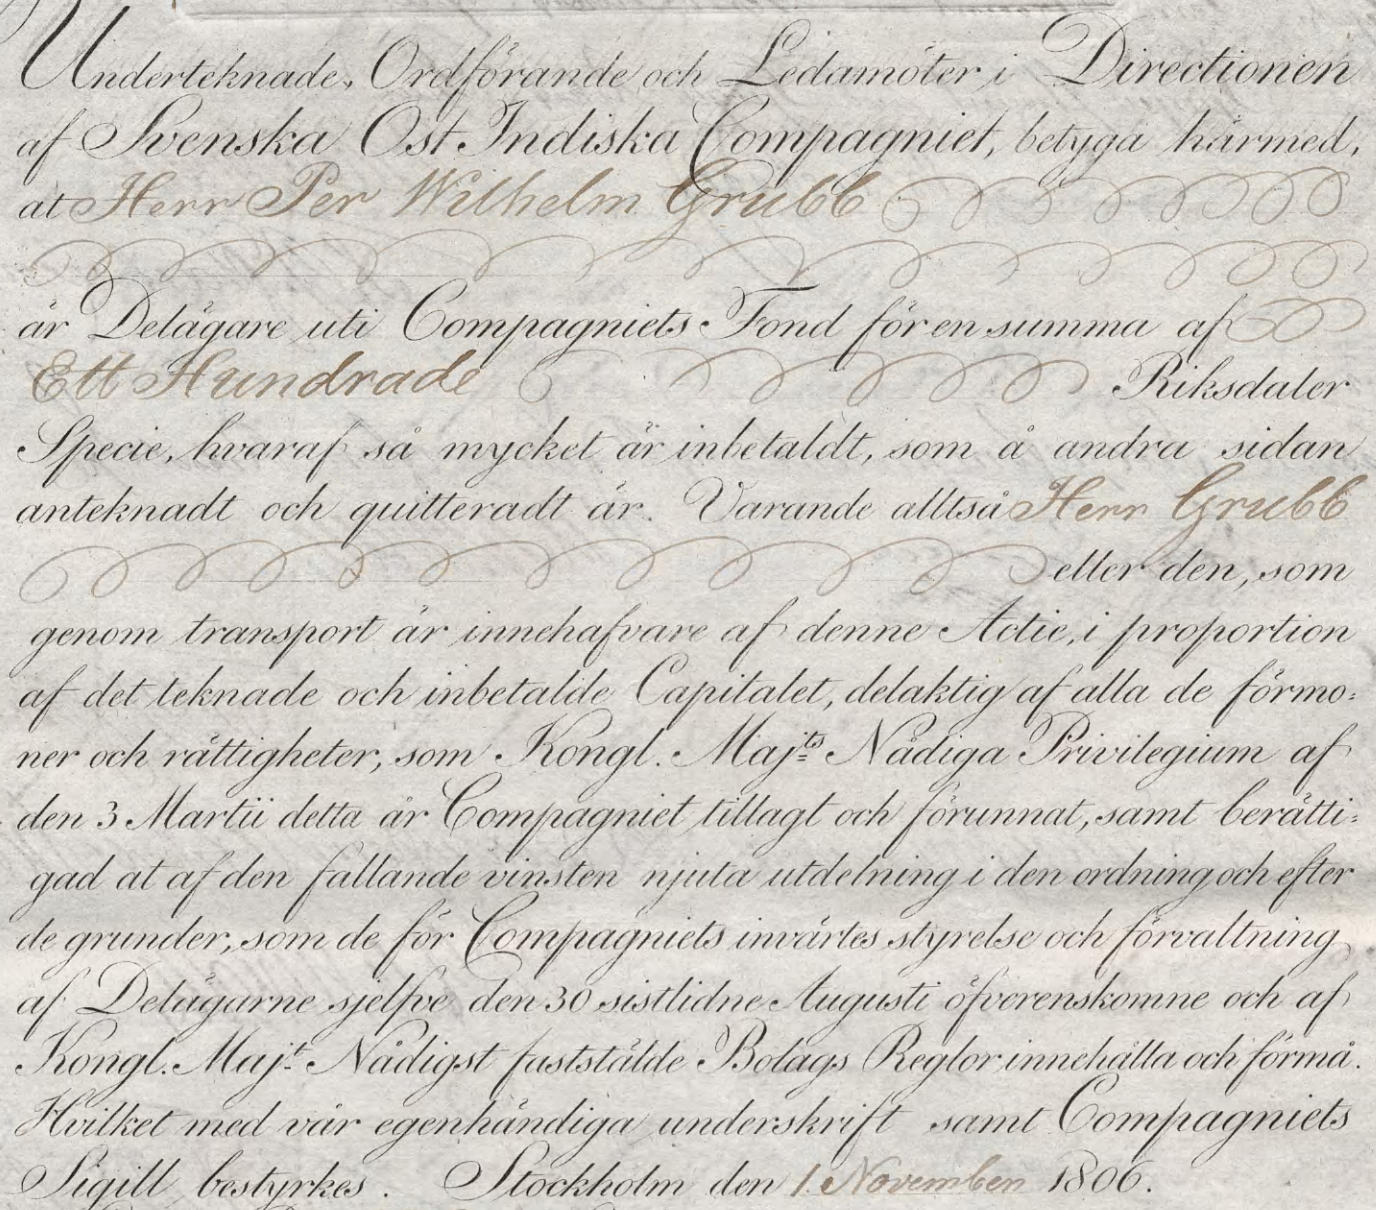 Underteknade, Ordförande och Ledamöter i Directionen
af Svenska Ost Indiska Compagniet, betyga härmed,
at Herr Per Wilhelm Grubb
är Delägare uti Compagniets Fond för en summa af
Ett Hundrade Riksdaler
Specie, hvaraf så mycket är inbetaldt, som å andra sidan
anteknadt och quitteradt är. Varande alltså Herr Grubb
eller den, som
genom transport är innehafvare af denne Actie, i proportion
af det teknade och inbetalde Capitalet, delaktig af alla de förmo-
ner och rättigheter, som Kongl. Maj:ts Nådiga Privilegium af
den 3 Martii detta år Compagniet tillagt och förunnat, samt berätti-
gad at af den fallande vinsten njuta utdelning i den ordning och efter
de grunder, som de för Compagniets invärtes styrelse och förvaltning
af Delägarne sjelfve den 30 sistlidne Augusti öfverenskomne och af
Kongl. Maj:t Nådigst faststälde Bolags Reglor innehålla och förmå.
Hvilket med vår egenhändiga underskrift samt Compagniets
Sigill bestyrkes. Stockholm den 1 November 1806.